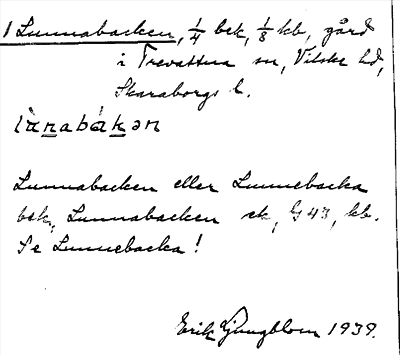 1 Lunnabacken, 1/4 bek, 1/8 kb, gård
i Trevattna sn, Vilske hd,
Skaraborgs l.
lànabákən
Lunnabacken eller Lunnebacka
bek, Lunnabacken ek, G 43, kb.
Se Lunnebacka!
Erik Ljungblom 1939.